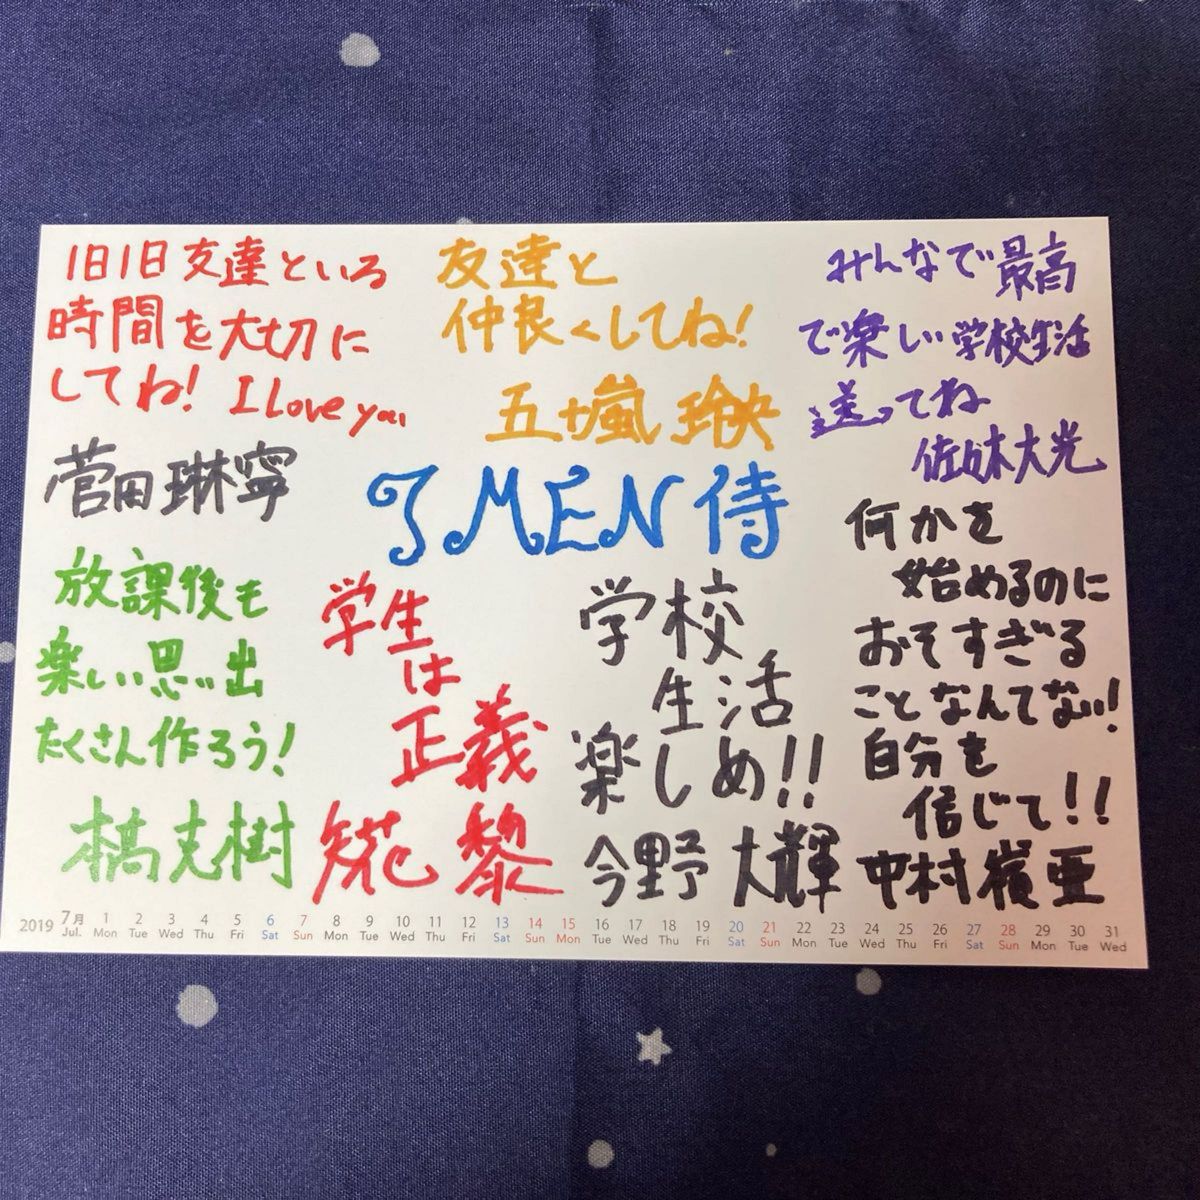 1日1日友達といる
時間を大切に
してね! I Love you
菅田琳寧
友達と
仲良くしてね!
五十嵐玲央
みんなで最高
で楽しい学校生活
送ってね
佐々木大光
7 MEN 侍
放課後も
楽しい思い出
たくさん作ろう!
本髙克樹
学生
は
正義
矢花 黎
学校
生活
楽しめ!!
今野 大輝
何かを
始めるのに
おそすぎる
ことなんてない!
自分を
信じて!!
中村嶺亜
2019 7月 Jul. 1 Mon 2 Tue 3 Wed 4 Thu 5 Fri 6 Sat 7 Sun 8 Mon 9 Tue 10 Wed 11 Thu 12 Fri 13 Sat 14 Sun 15 Mon 16 Tue 17 Wed 18 Thu 19 Fri 20 Sat 21 Sun 22 Mon 23 Tue 24 Wed 25 Thu 26 Fri 27 Sat 28 Sun 29 Mon 30 Tue 31 Wed